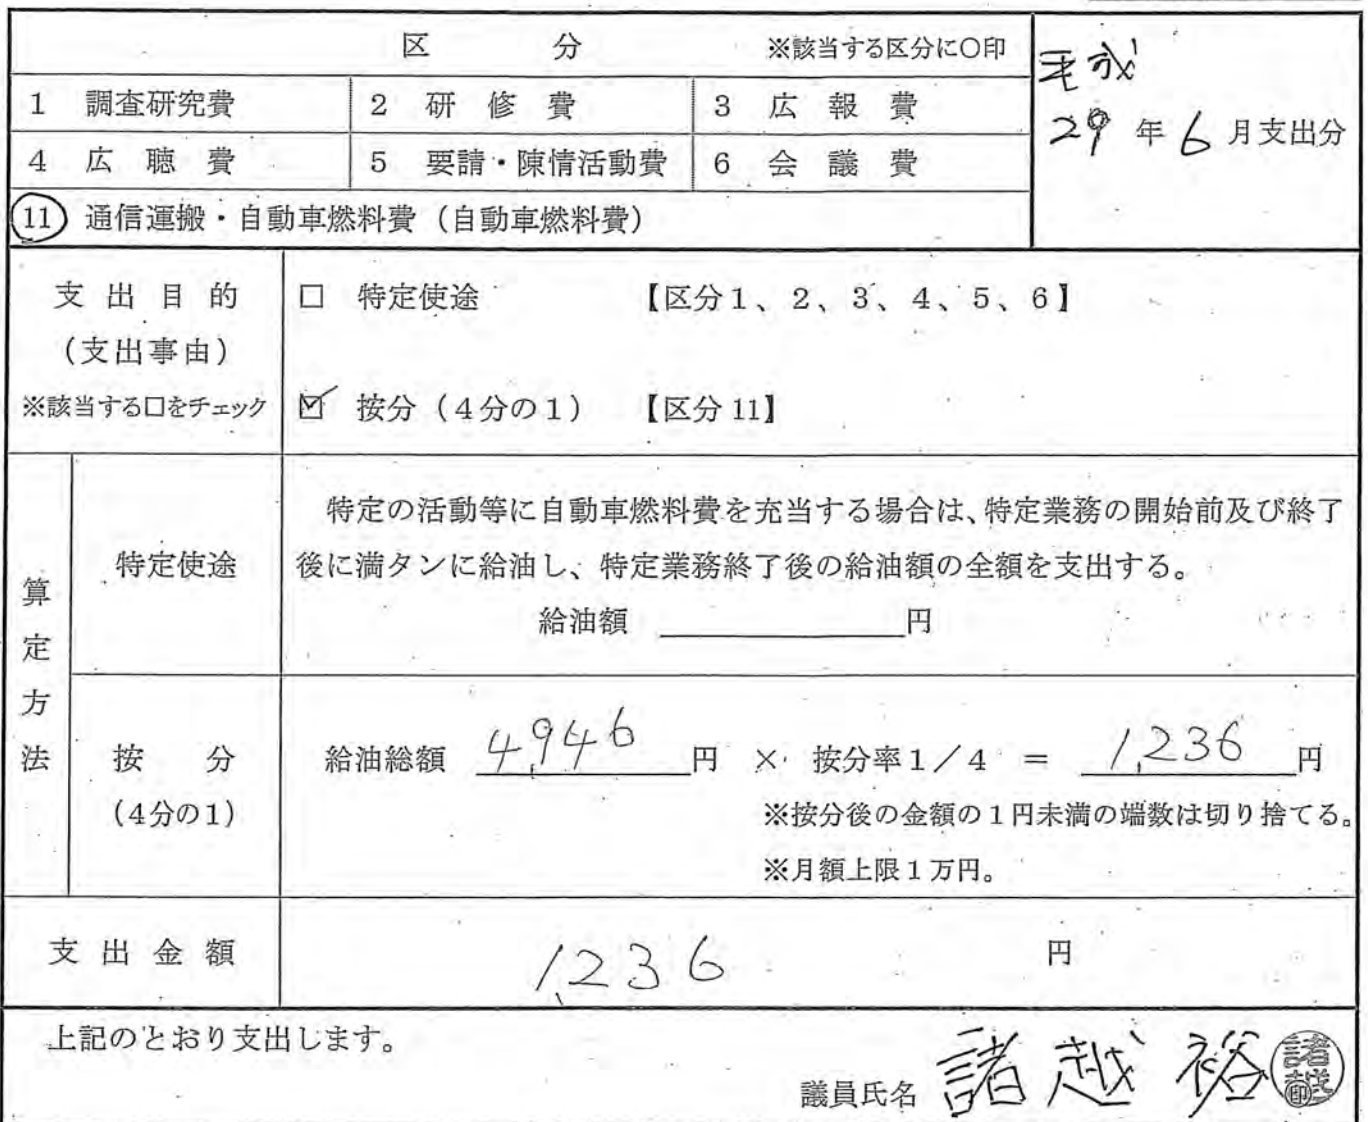 区　　分　※該当する区分に○印
平成
29年6月支出分
1 調査研究費　2 研修費　3 広報費
4 広聴費　5 要請・陳情活動費　6 会議費
11 通信運搬・自動車燃料費（自動車燃料費）
支出目的
（支出事由）
※該当する□をチェック
□ 特定使途　【区分1、2、3、4、5、6】
☑ 按分（4分の1）　【区分11】
算定方法
特定使途
特定の活動等に自動車燃料費を充当する場合は、特定業務の開始前及び終了
後に満タンに給油し、特定業務終了後の給油額の全額を支出する。
給油額　　　　円
按分
（4分の1）
給油総額 4,946 円 × 按分率1／4 ＝ 1,236 円
※按分後の金額の1円未満の端数は切り捨てる。
※月額上限1万円。
支出金額　1,236 円
上記のとおり支出します。
議員氏名 諸越 裕 諸越印